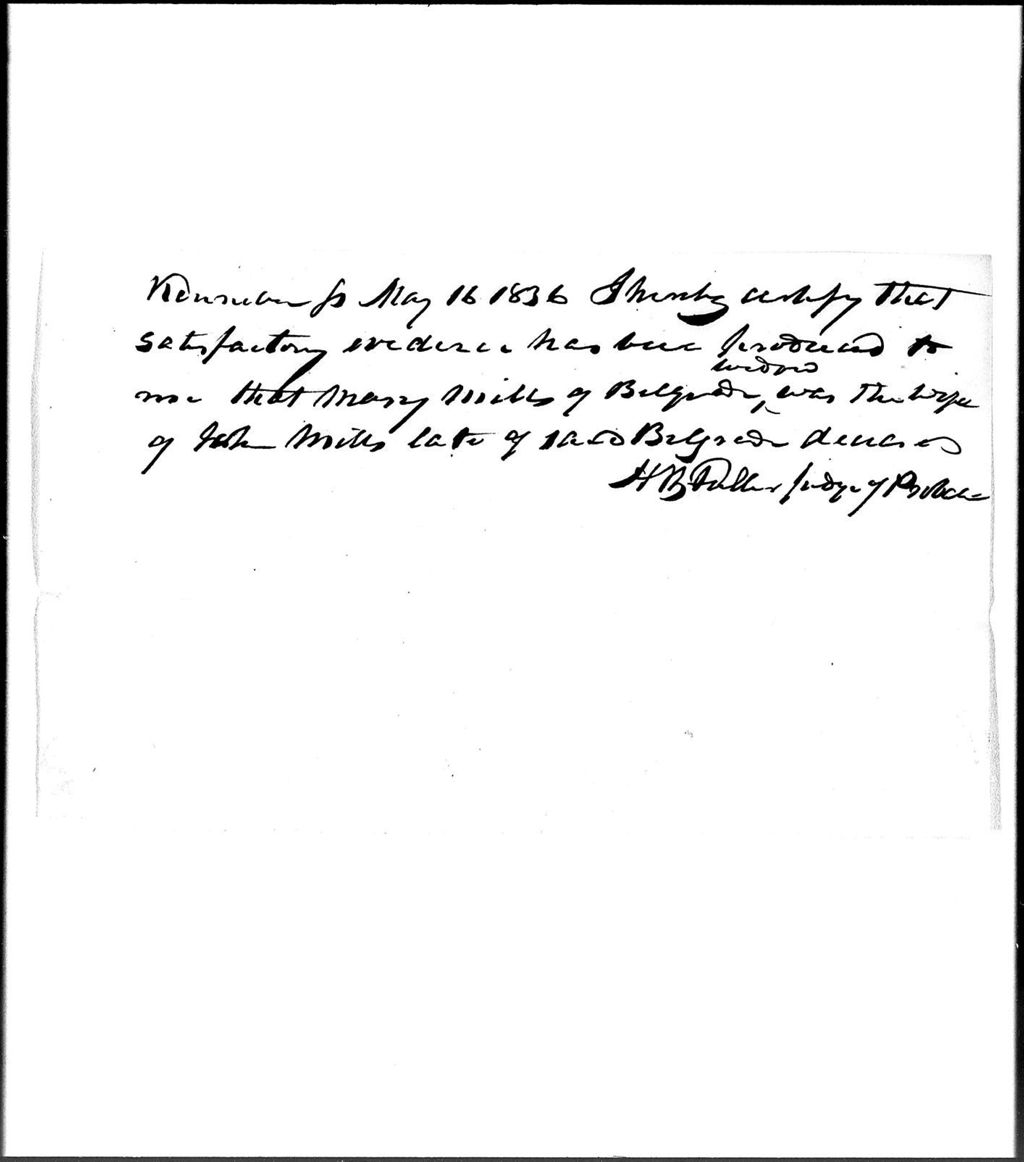 Kennebec Ss May 16 1836 I hereby certify that
satisfactory evidence has been produced to
widow
me that Mary Mills of Belgrade, was the wife
of John Mills late of said Belgrade deceased
H W Fuller Judge of Probate